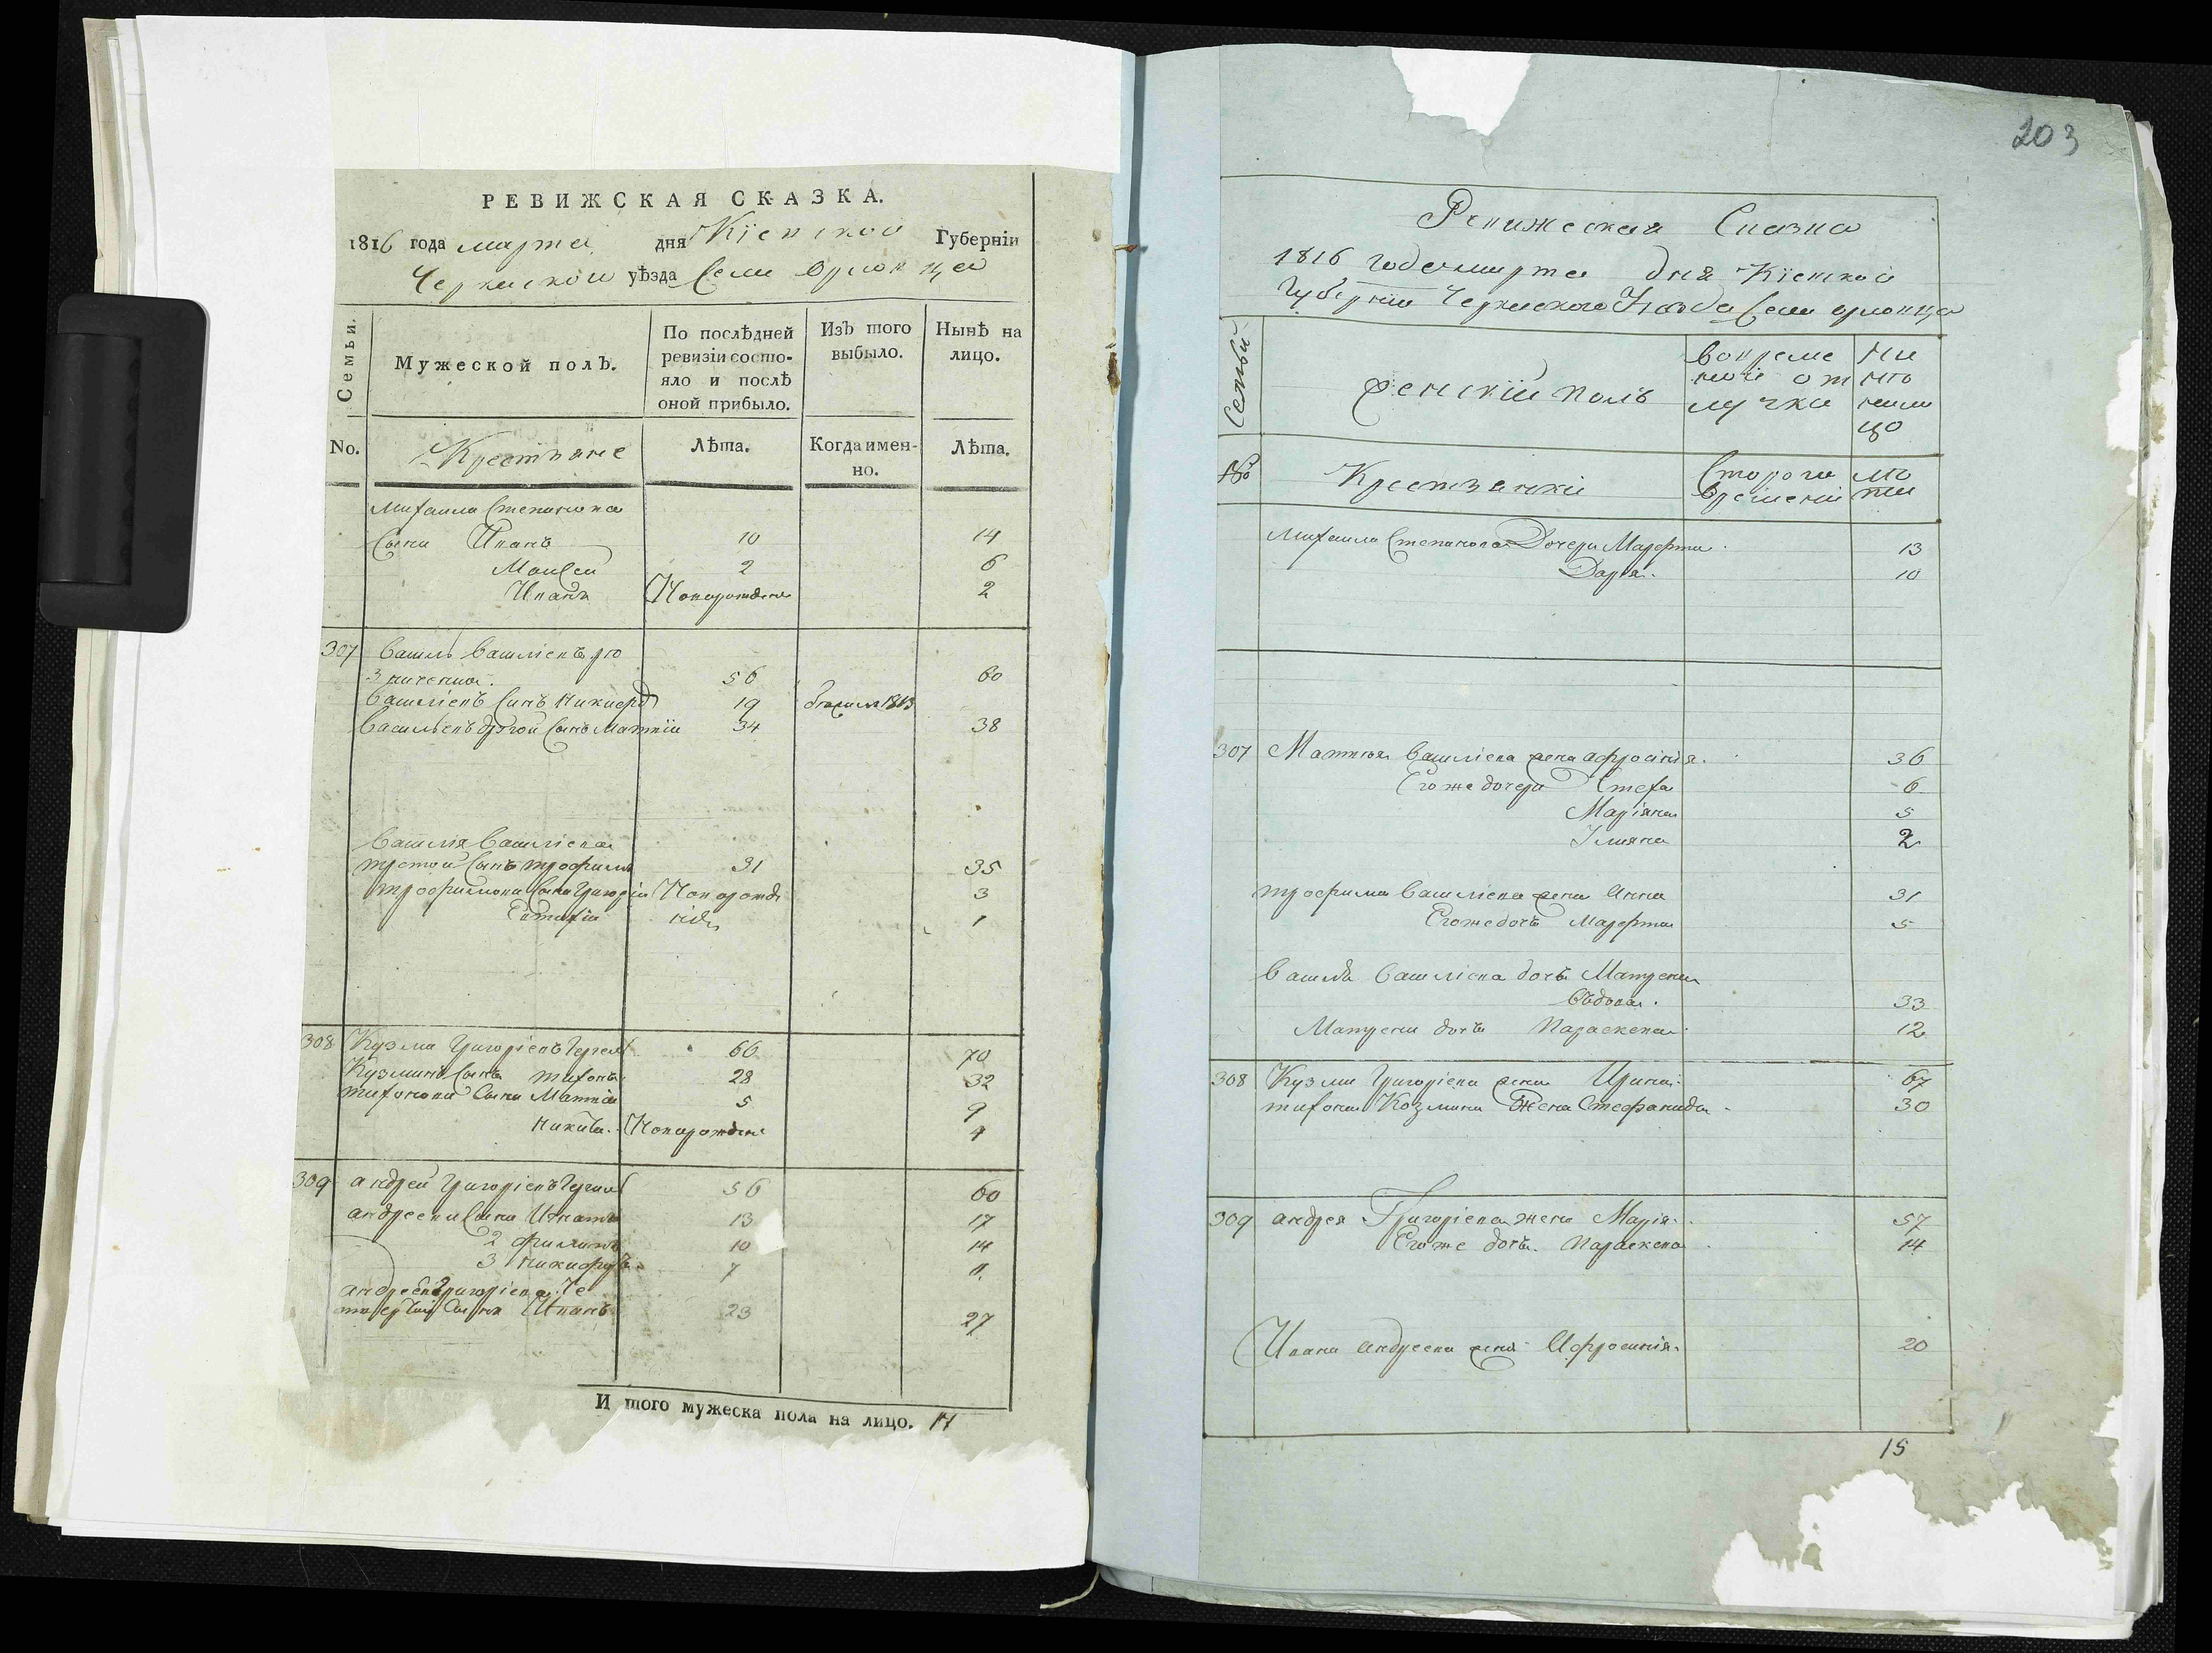 РЕВИЖСКАЯ СКАЗКА.
1816 года марта дня Кіевской Губерніи
Черкаской уѣзда Села Орловца
Семьи.
Мужеской полъ.
По послѣдней ревизіи состояло и послѣ оной прибыло.
Изъ того выбыло.
Нынѣ на лицо.
No.
Крестьяне
Лѣта.
Когда именно.
Лѣта.
Михаила Степанова
Сыни Иванъ 10 14
Моисей 2 6
Иванъ Новорожден 2
307 Василь Василіевъ
56 60
Василіевъ Синъ Никифор 19 1813
Васильевъ другой Сынъ Матвій 34 38
Василя Василіева
третой Сынъ трофимъ 31 35
трофимова Сыни Григорій Новорожде 3
Евтихій нїе 1
308 Кузма Григоріевъ 66 70
Кузминъ Сынъ тихонъ 28 32
тихонови Сыни Матвій 5 9
Никита Новорожден 4
309 андрей Григоріевъ 56 60
андрееви Сыни Игнатъ 13 17
2 филипъ 10 14
3 Никифоръ 7 11
андреевъ Григоріева че
твертый Сынъ Иванъ 23 27
И того мужеска пола на лицо. 17
203
Ревижеская Сказка
1816 года марта дня Кіевской
Губерніи Черкаского Уѣзда Села орловца
Семьи
женскій полъ
во време
ной от
лучки
ны
нѣ
нали
цо
№
Крестянки
Сторого
времени
лѣ
та
Михаила Степанова Дочери Марфта 13
Даря 10
307 Матвія Василіева жена афросинія 36
Егоже дочери Стефа 6
Маріяна 5
Уляна 2
трофима Василіева жена Анна 31
Егоже дочъ Марфта 5
Василя Василіева дочъ Матрена
Вдова 33
Матрени дочъ Параскева 12
308 Кузми Григоріева жена Ирина 67
тихона Козмина Жена Стефанида 30
309 андрея Григоріева жена Марія 57
Егоже дочъ Параскева 14
Ивана андреева жена Афросинія 20
15